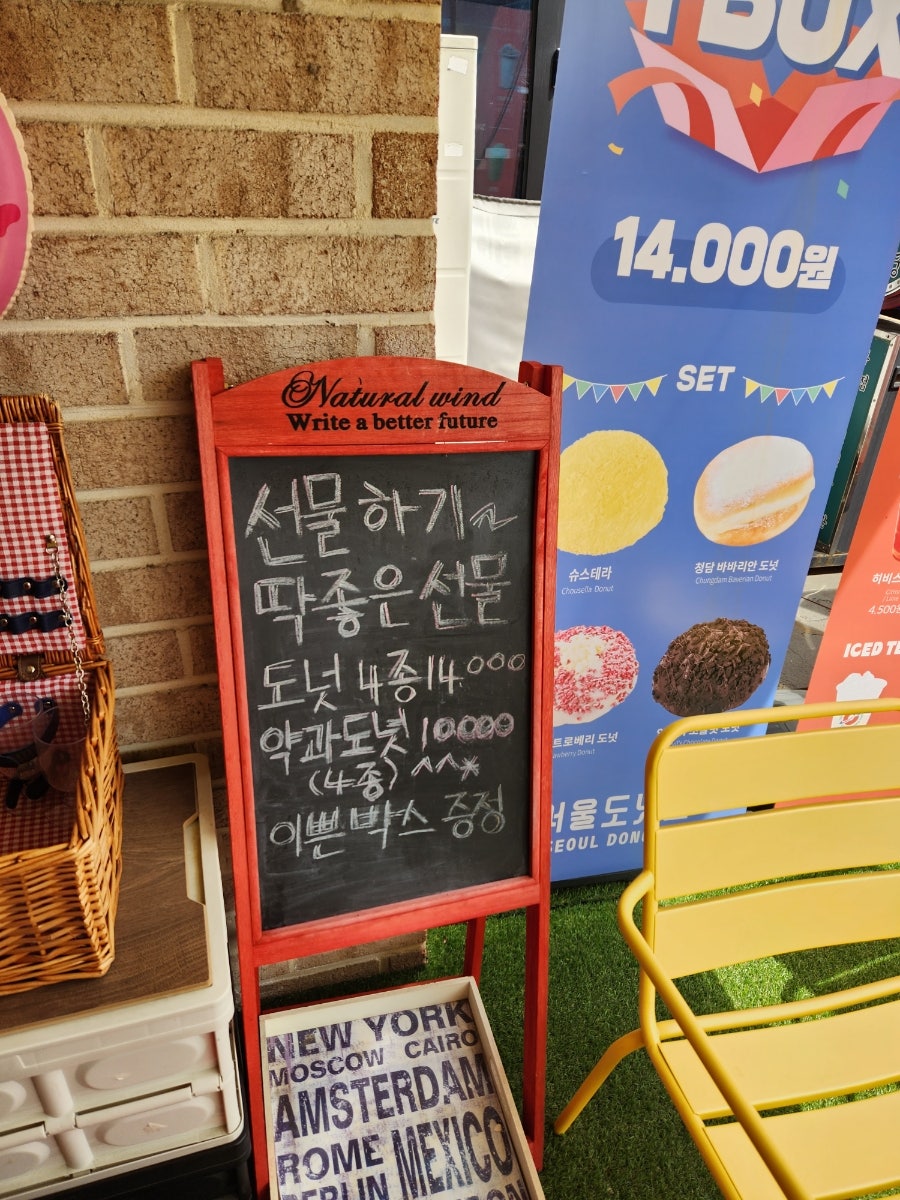 Natural wind
Write a better future
선물하기~
딱좋은 선물
도넛 4종 14.000
약과도넛 10000
(4종) ^^*
이쁜 박스 증정
BOX
14.000원
SET
슈스테라
Chousella Donut
청담 바바리안 도넛
Chungdam Bavarian Donut
트로베리 도넛
Donut
서울도넛
SEOUL DON
히비스
4.500
ICED TE
NEW YORK
MOSCOW CAIRO
AMSTERDAM
ROME MEXICO
BERLIN